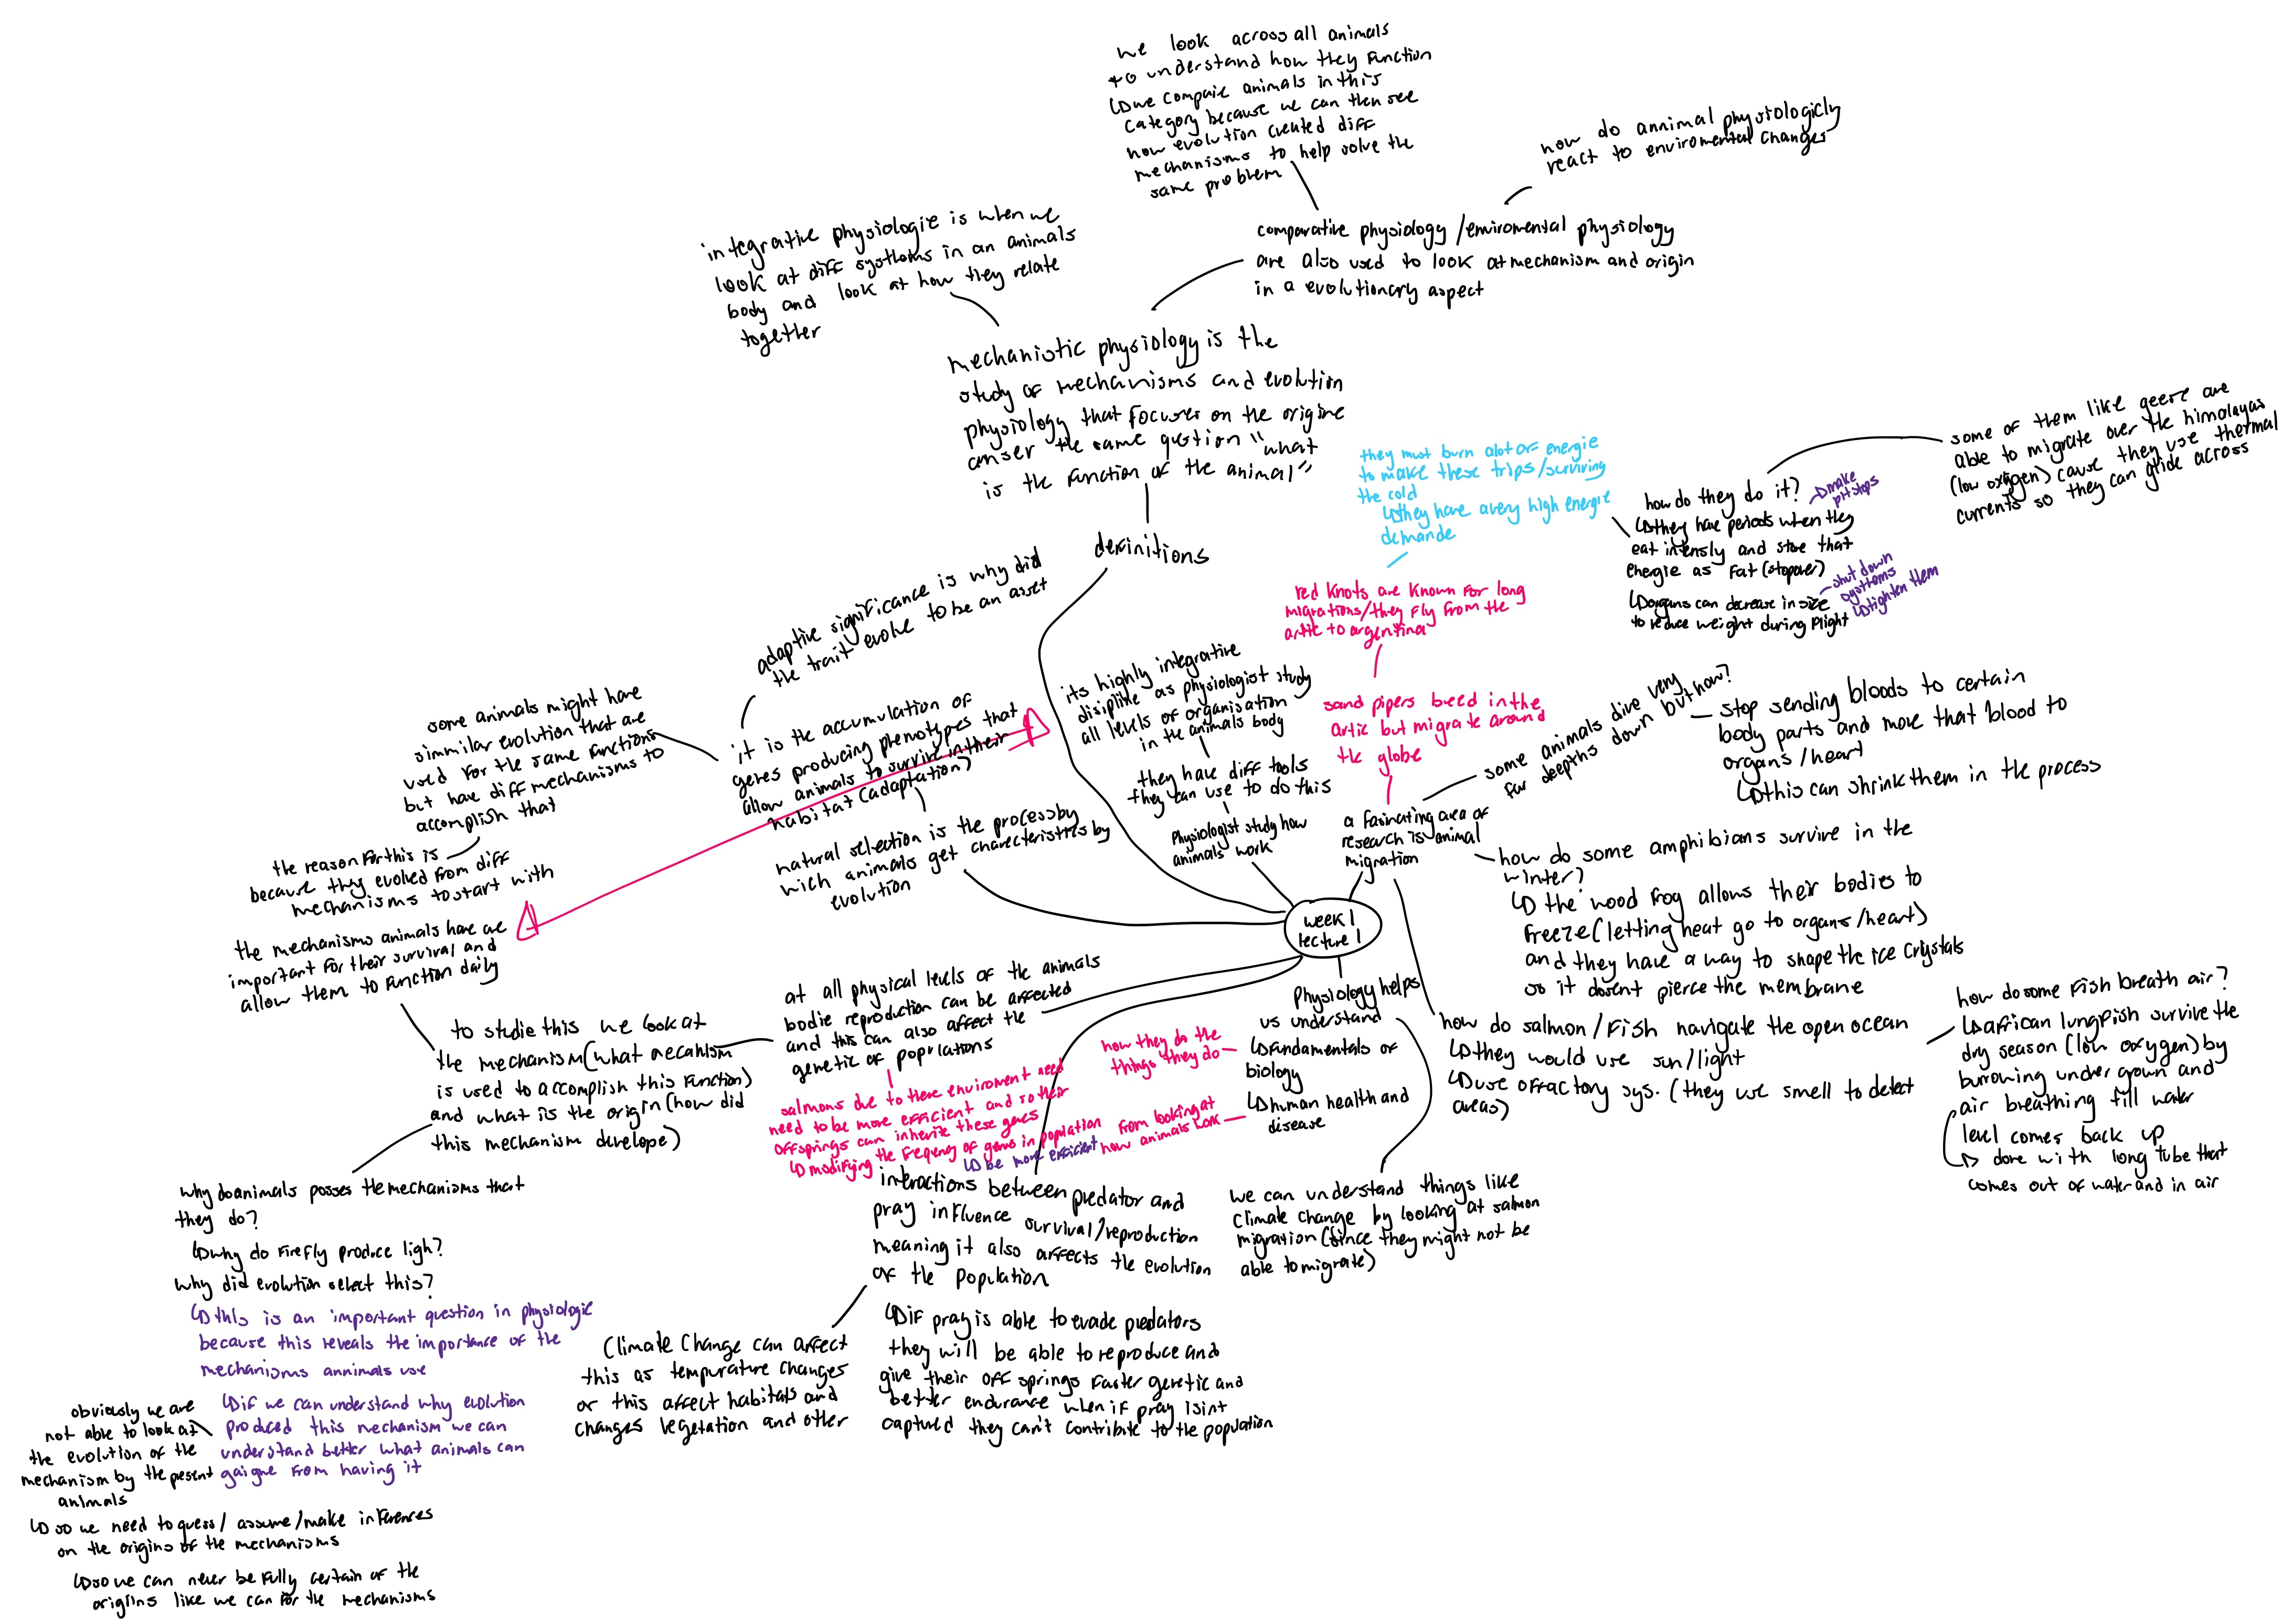 we look across all animals
to understand how they function
↳we compare animals in this
category because we can then see
how evolution created diff
mechanisms to help solve the
same problem
how do annimal physiologicly
react to enviromental changes
comparative physiology /enviromental physiology
are also used to look at mechanism and origin
in a evolutionary aspect
integrative physiologie is when we
look at diff systhems in an animals
body and look at how they relate
together
mechanistic physiology is the
study of mechanisms and evolution
physiology that focuses on the origine
anser the same question "what
is the function of the animal"
definitions
they must burn alot of energie
to make these trips/surviving
the cold
↳they have a very high energie
demande
how do they do it?
↳make
pitstops
↳they have periods when they
eat intensly and store that
energie as fat (stopover)
↳organs can decrease in size
to reduce weight during flight
shut down
systhems
↳tighten them
some of them like geese are
able to migrate over the himalayas
(low oxygen) cause they use thermal
currents so they can glide across
red knots are known for long
migrations/they fly from the
artic to argentina
sand pipers breed in the
artic but migrate around
the globe
a fasinating area of
research is animal
migration
some animals dive very
far deepths down but how?
stop sending bloods to certain
body parts and move that blood to
organs/heart
↳this can shrink them in the process
how do some amphibians survive in the
winter?
↳ the wood frog allows their bodies to
freeze (letting heat go to organs/heart)
and they have a way to shape the ice crystals
so it dosent pierce the membrane
how do salmon/fish navigate the open ocean
↳they would use sun/light
↳use offactory sys. (they use smell to detect
areas)
how do some fish breath air?
↳african lungfish survive the
dry season (low oxygen) by
burrowing under grown and
air breathing fill water
level comes back up
→ done with long tube that
comes out of water and in air
its highly integrative
disipline as physiologist study
all levels of organisation
in the animals body
they have diff tools
they can use to do this
Physiologist study how
animals work
adaptive significance is why did
the trait evolve to be an asset
it is the accumulation of
genes producing phenotypes that
allow animals to survive in their
habitat (adaptation)
natural selection is the process by
wich animals get characteristics by
evolution
some animals might have
simmilar evolution that are
used for the same functions
but have diff mechanisms to
accomplish that
the reason for this is
because they evolved from diff
mechanisms to start with
week 1
lecture 1
the mechanisms animals have are
important for their survival and
allow them to function daily
to studie this we look at
the mechanism (what mecahism
is used to accomplish this function)
and what is the origin (how did
this mechanism develope)
at all physical levels of the animals
bodie reproduction can be affected
and this can also affect the
genetic of populations
salmons due to there enviroment need
need to be more efficient and so their
offsprings can inherite these genes
↳ modifying the freqency of gens in population
↳ be more efficient
Physiology helps
us understand
↳fundamentals of
biology
↳human health and
disease
how they do the
things they do
from looking at
how animals work
we can understand things like
climate change by looking at salmon
migration (since they might not be
able to migrate)
interactions between predator and
pray influence survival/reproduction
meaning it also affects the evolution
of the population
↳if pray is able to evade predators
they will be able to reproduce and
give their off springs faster genetic and
better endurance when if pray isint
captured they can't contribute to the population
Climate Change can affect
this as tempurature changes
or this affect habitats and
changes vegetation and other
why do animals posses the mechanisms that
they do?
↳why do firefly produce ligh?
why did evolution select this?
↳this is an important question in physiologie
because this reveals the importance of the
mechanisms annimals use
↳if we can understand why evolution
produced this mechanism we can
understand better what animals can
gaigne from having it
obviously we are
not able to look at
the evolution of the
mechanism by the present
animals
↳so we need to guess/ assume/make inferences
on the origins of the mechanisms
↳so we can never be fully certain of the
origiins like we can for the mechanisms